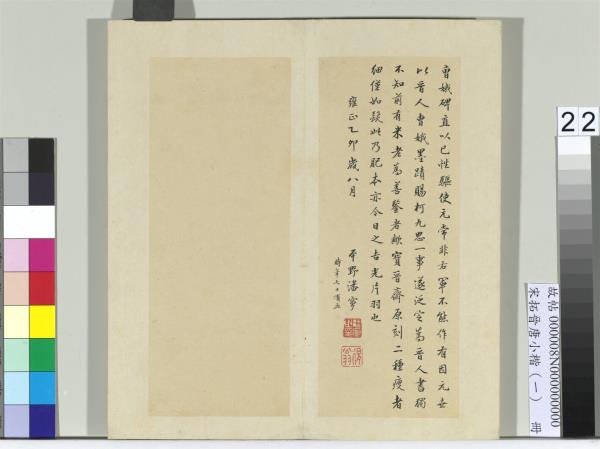 曹娥碑直以己性驅使元常非右軍不能作有因元世
以晉人曹娥墨蹟賜柯九思一事遂泛定為晉人書獨
不知前有米老為善鑒者歟寶晉齋原刻二種瘦者
細僅如髮此乃肥本亦今日之吉光片羽也
雍正乙卯歲八月
平野潘寧
時年六十有五
22
故帖 000008N000000000
宋拓晉唐小楷（一） 冊